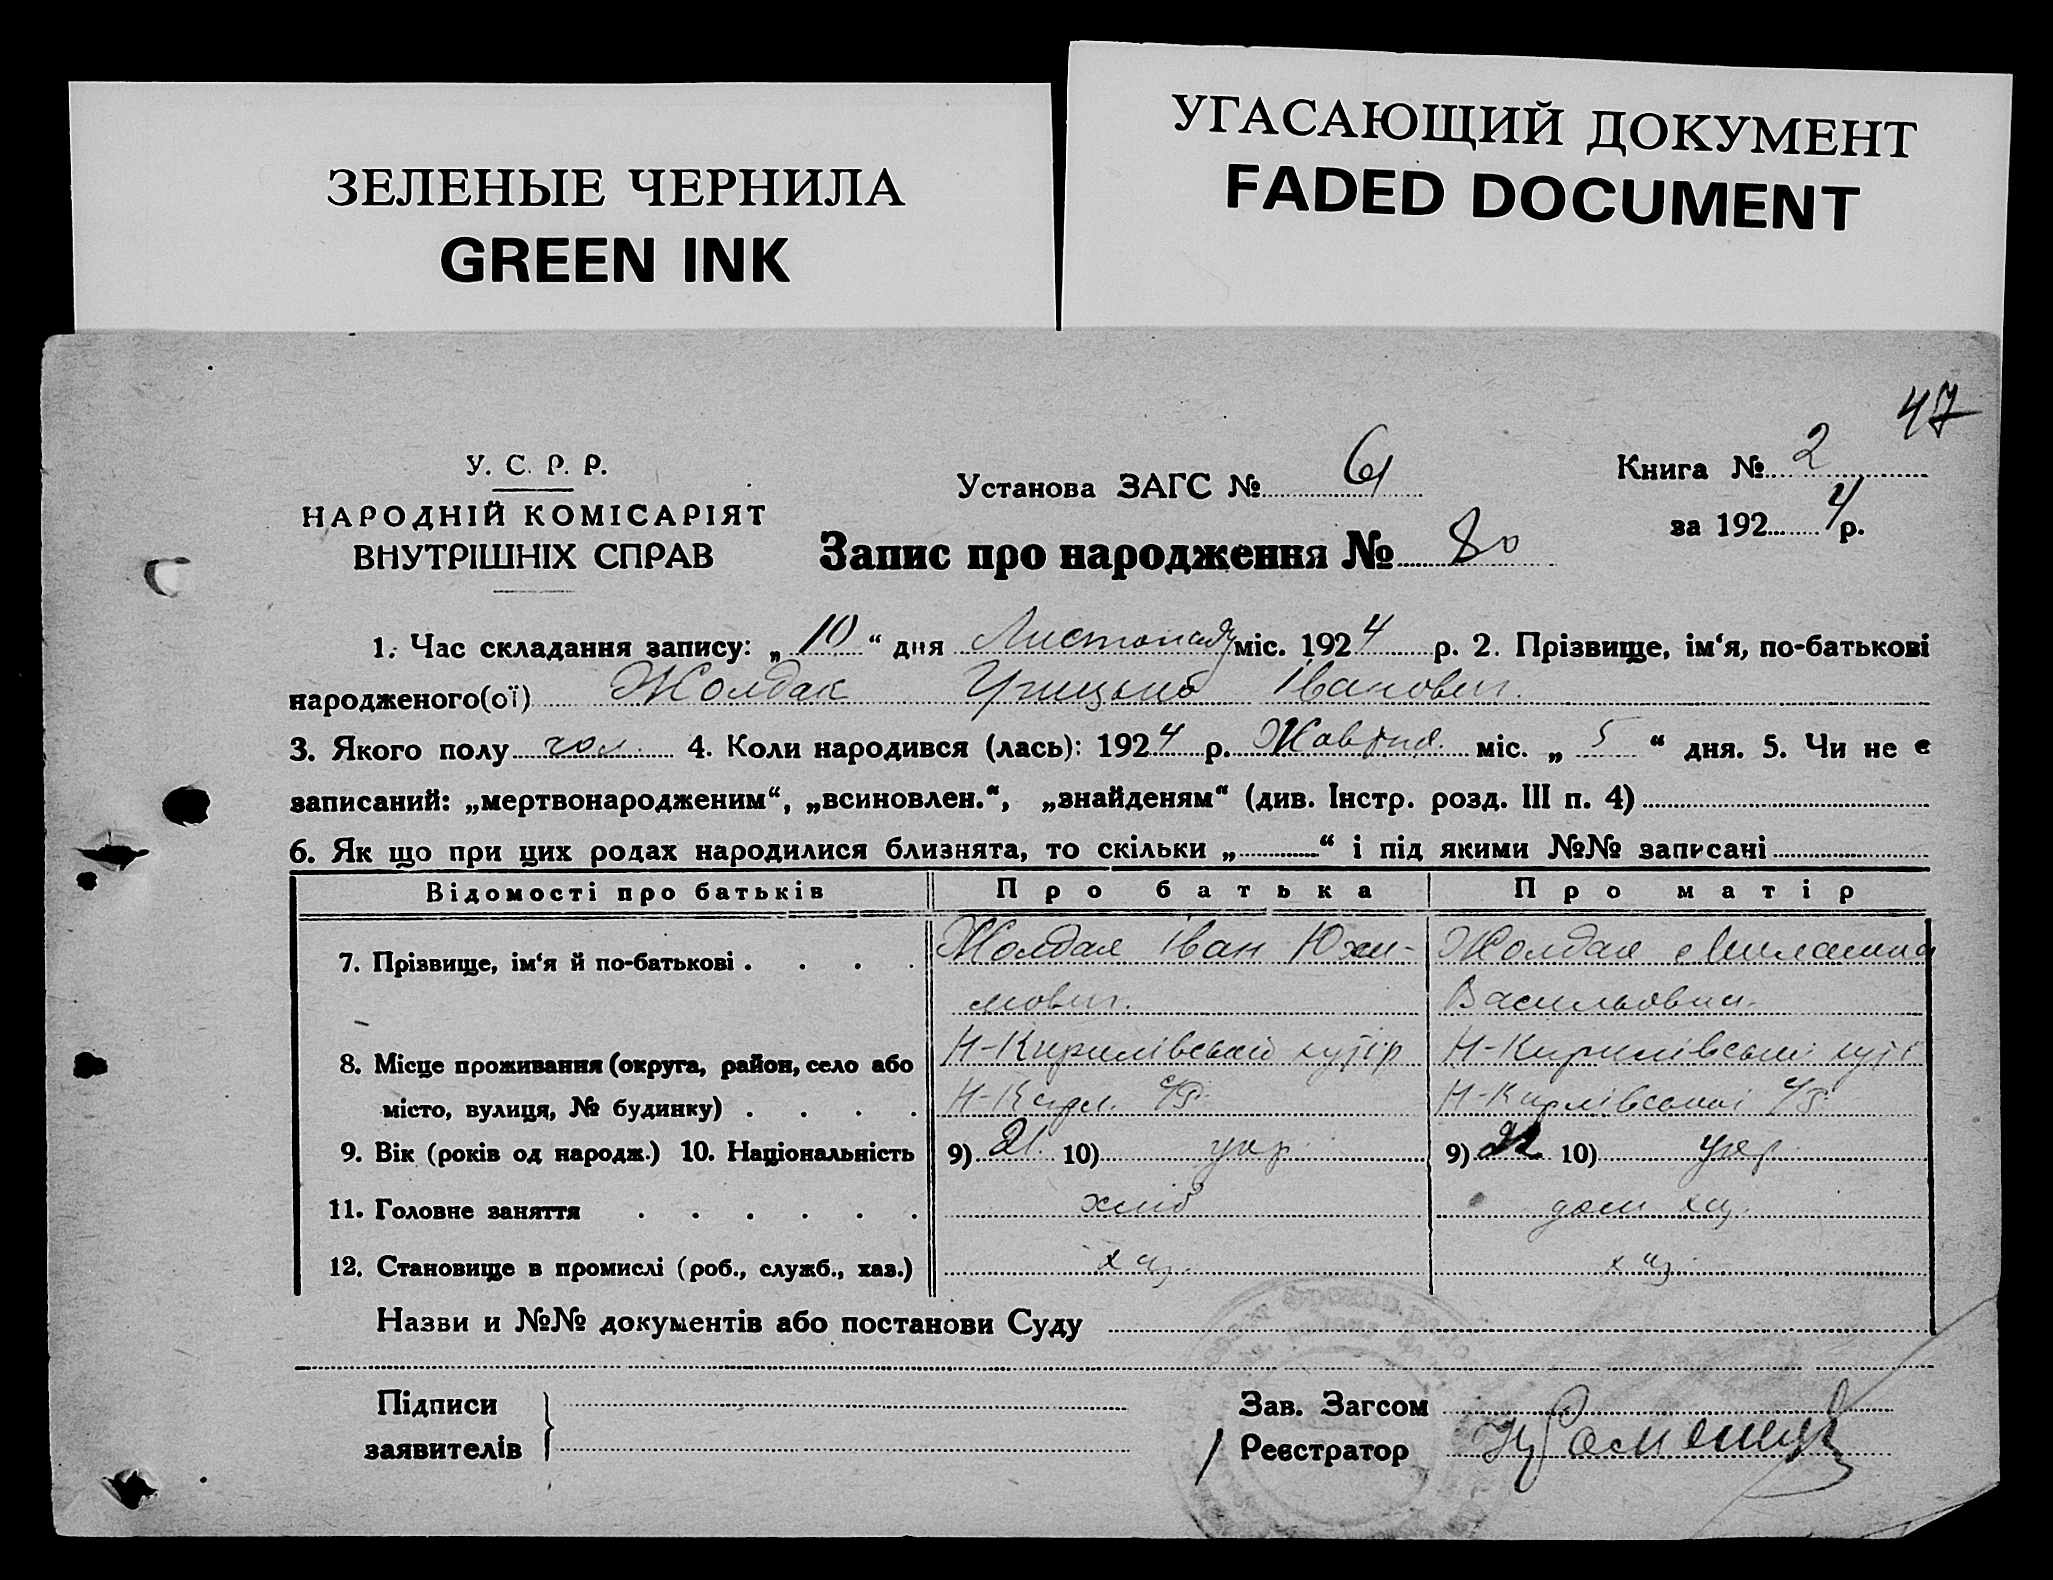 ЗЕЛЕНЫЕ ЧЕРНИЛА
GREEN INK
УГАСАЮЩИЙ ДОКУМЕНТ
FADED DOCUMENT
47
У. С. Р. Р.
НАРОДНІЙ КОМІСАРІЯТ
ВНУТРІШНІХ СПРАВ
Установа ЗАГС №
Книга № 2
за 1924 р.
Запис про народження № 80
1. Час складання запису: „10“ дня Листопаду міс. 1924 р. 2. Прізвище, ім‘я, по-батькові
народженого(ої) Жолдак Грицько Іванович.
3. Якого полу чол. 4. Коли народився (лась): 1924 р. Жовтня міс. „5“ дня. 5. Чи не є
записаний: „мертвонародженим“, „всиновлен.“, „знайденям“ (див. Інстр. розд. III п. 4)
6. Як що при цих родах народилися близнята, то скільки „ “ і під якими №№ записані
Відомості про батьків Про батька Про матір
7. Прізвище, ім‘я й по-батькові . . . . Жолдак Іван Юхи- Жолдак Миланка
мович. Васильовна.
Н-Кирилівський хутір Н-Кирилівський хуті
8. Місце проживання (округа, район, село або
місто, вулиця, № будинку) . . . . Н-Кирл. с/р. Н-Кирлівської с/р.
9. Вік (років од народж.) 10. Національність 9) 21. 10) укр. 9) 22 10) укр.
11. Головне заняття . . . . . . хліб дом хаз.
12. Становище в промислі (роб., служб., хаз.) хаз. хаз.
Назви и №№ документів або постанови Суду
Підписи
заявителів
Зав. Загсом
Реєстратор